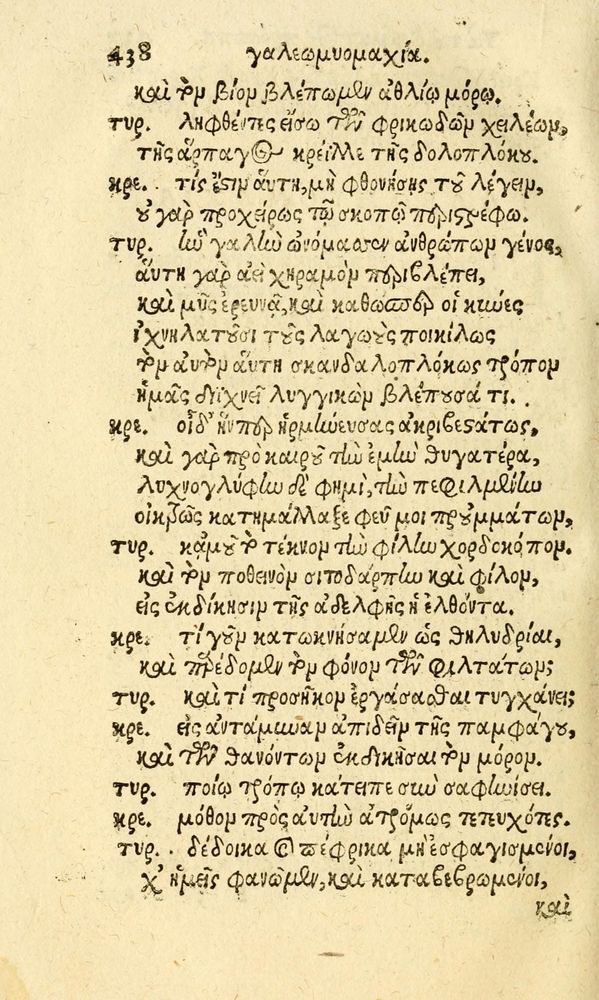 438 γαλεωμυομαχία.
καὶ τὸν βίον βλέπωμεν ἀθλίῳ μόρῳ.
τυρ. ληφθέντες εἴσω τῶν φρικωδῶν χειλέων,
τῆς ἅρπαγος κρεῖλλε τῆς δολοπλόκου.
κρε. τίς ἔστιν ἅυτη, μὴ φθονήσῃς τοῦ λέγειν,
οὐ γὰρ προχείρως τῷ σκοπῷ περιστρέφω.
τυρ. ἣν γαλῆν ὠνόμασεν ἀνθρώπων γένος,
ἅυτη γὰρ ἀεὶ χηραμὸν περιβλέπει,
καὶ μῦς ἐρευνᾷ, καὶ καθώσπερ οἱ κύνες
ἰχνηλατοῦσι τοὺς λαγωοὺς ποικίλως
τὸν αὐτὸν ἅυτη σκανδαλοπλόκως τρόπον
ἡμᾶς διϊχνεῖ λυγγικὸν βλέπουσά τι.
κρε. οἶδ' ἥνπερ ἡρμήνευσας ἀκριβεστάτως,
καὶ γὰρ πρὸ καιροῦ τὴν ἐμὴν θυγατέρα,
λυχνογλύφην δέ φημι, τὴν πεφιλμένην
οἰκτρῶς κατημάλλαξε φεῦ μοι πρ' ὀμμάτων,
τυρ. κἀμοῦ τὸ τέκνον τὴν φίλην χορδοκόπον.
καὶ τὸν ποθεινὸν σιτοδάρπτην καὶ φίλον,
εἰς ἐκδίκησιν τῆς ἀδελφῆς ἢ ἐλθόντα.
κρε. τί γοῦν κατωκνήσαμεν ὡς θηλυδρίαι,
καὶ προέδομεν τὸν φόνον τῶν φιλτάτων;
τυρ. καὶ τί προσῆκον ἐργάσασθαι τυγχάνει;
κρε. εἰς ἀντάμυναν ἀπιδεῖν τῆς παμφάγου,
καὶ τῶν θανόντων ἐκδικῆσαι τὸν μόρον.
τυρ. ποίῳ τρόπῳ κάτειπε σὺν σαφηνίσει.
κρε. μόθον πρὸς αὐτὴν ἀτρόμως τετευχότες.
τυρ. δέδοικα καὶ πέφρικα μὴ ἐσφαγισμένοι,
χ' ἡμεῖς φανῶμεν, καὶ καταβεβρωμένοι,
καὶ